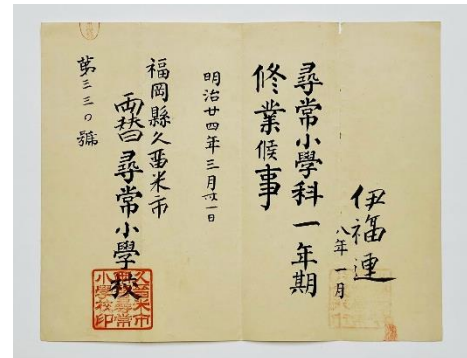 伊福連
八年一月
尋常小學科一年期
修業候事
明治廿四年三月卅一日
福岡縣久畱米市
両替尋常小學校
第三三〇號
小學校印